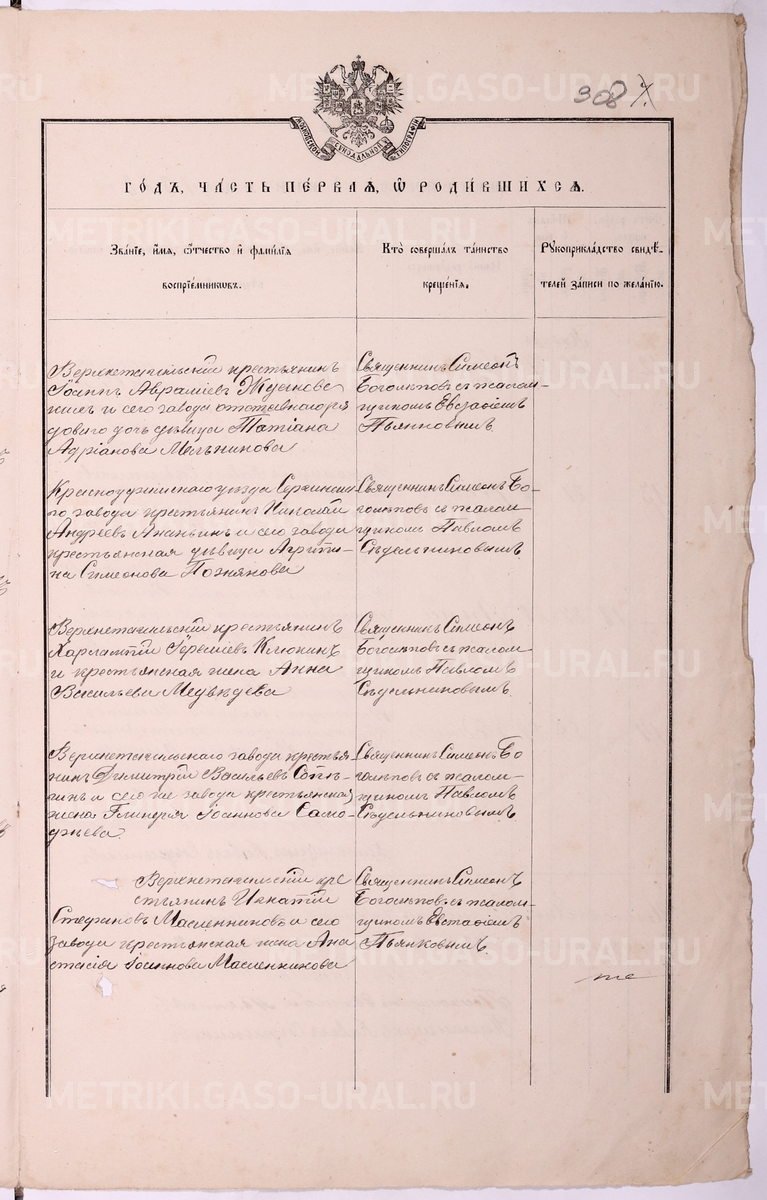 308
МОСКОВСКОЙ СѴНОДАЛЬНОЙ ТИПОГРАФІИ
ГО́ДЪ, ЧА́СТЬ ПЕ́РВАЯ, Ѡ҆ РОДИ́ВШИХСЯ.
Зва́нїе, и҆́мя, ѻ҆́тчество и҆ фами́лїя
воспрїе́мникѡвъ.
Кто̀ соверша́лъ та́инство
креще́нїя.
Рꙋкоприкла́дство свидѣ́-
телей за́писи по жела́нїю.
Верхнетагильскій крестьянинъ
Іоаннъ Авраміевъ
и сего завода отставнаго ря
доваго дочь дѣвица Татіана
Адріанова Мельникова
Священникъ Симеонъ
Богомъповъ съ псалом-
щикомъ Евстафіемъ
Пьянковымъ
Красноуфимскаго уѣзда Сергинска-
го завода крестьянинъ Николай
Андреевъ Ананьинъ и сего завода
крестьянская дѣвица Агрипи-
на Симеонова Познякова
Священникъ Симеонъ Бо-
гомъповъ съ псалом-
щикомъ Павломъ
Сѣдельниковымъ
Верхнетагильскій крестьянинъ
Харлампій Іереміевъ Клюкинъ
и крестьянская жена Анна
Васильева Медвѣдева
Священникъ Симеонъ
Богомъповъ съ псалом
щикомъ Павломъ
Сѣдельниковымъ
Верхнетагильскаго завода крестья
нинъ Димитрій Васильевъ
и сего же завода крестьянская
жена Гликерія Іоаннова Само-
дѣева
Священникъ Симеонъ Бо
гомъповъ съ псалом-
щикомъ Павломъ
Сѣдельниковымъ
Верхнетагильскій кре
стьянинъ Игнатій
Стефановъ Масленниковъ и сего
завода крестьянская жена Ана
стасія Іоаннова Масленникова
Священникъ Симеонъ
Богомъповъ съ псалом-
щикомъ Евстафіемъ
Пьянковымъ
METRIKI.GASO-URAL.RU